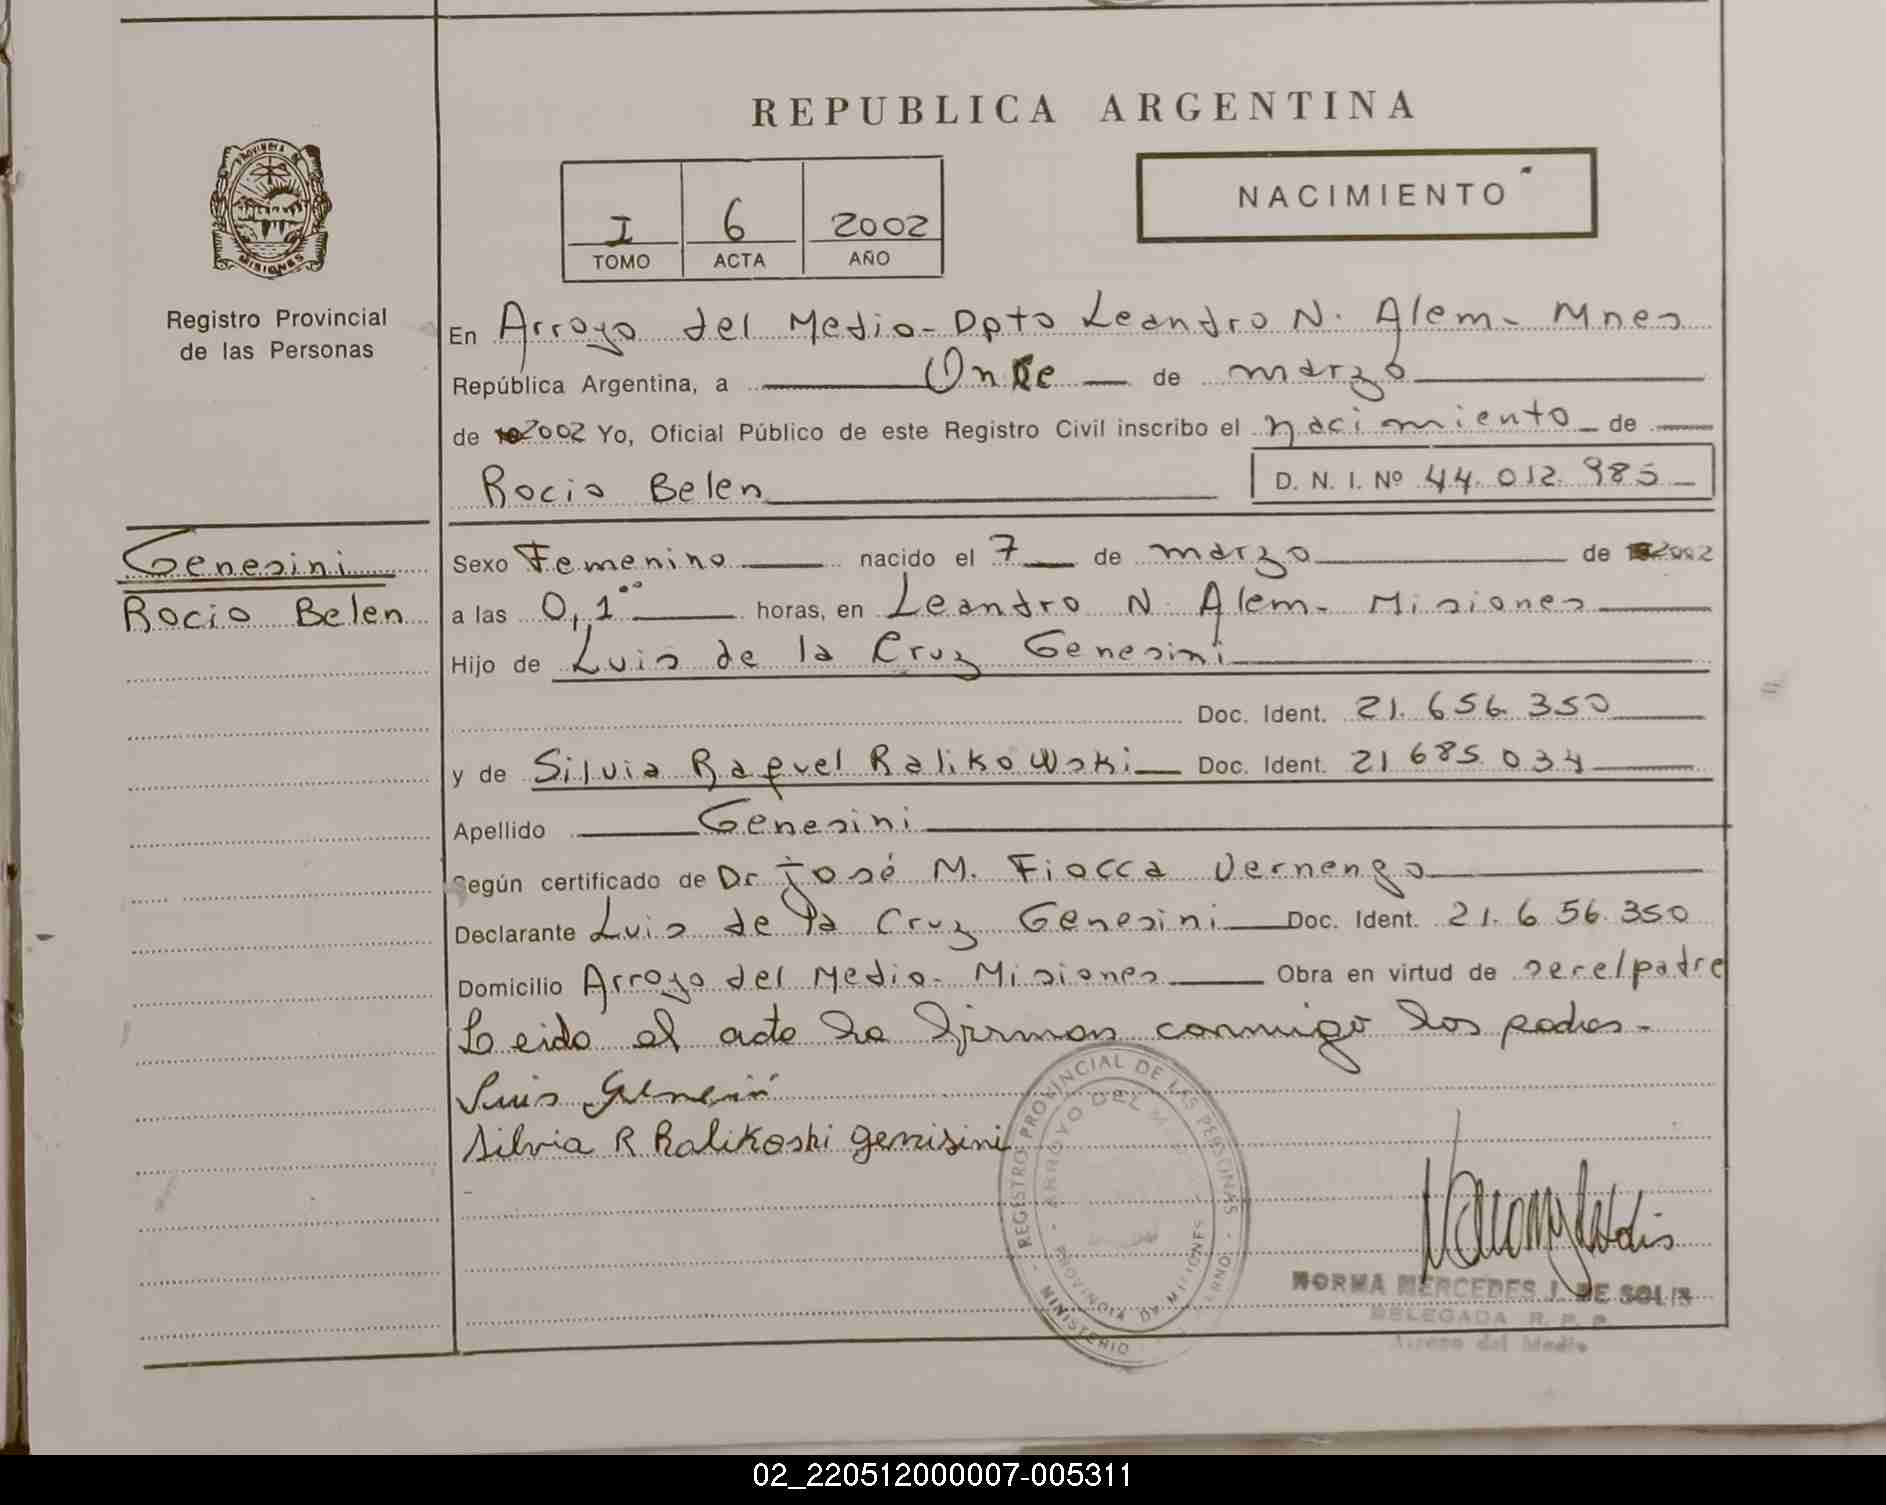 REPUBLICA ARGENTINA
PROVINCIA DE MISIONES
Registro Provincial
de las Personas
I 6 2002
TOMO ACTA AÑO
NACIMIENTO
En Arroyo del Medio - Dpto Leandro N. Alem - Mnes
República Argentina, a Once de marzo
de 2002 Yo, Oficial Público de este Registro Civil inscribo el nacimiento de
Rocio Belen D. N. I. Nº 44.012.985
Genesini
Rocio Belen
Sexo Femenino nacido el 7 de marzo de 2002
a las 0,1°° horas, en Leandro N. Alem - Misiones
Hijo de Luis de la Cruz Genesini
Doc. Ident. 21.656.350
y de Silvia Raquel Ralikowski Doc. Ident. 21 685 034
Apellido Genesini
Según certificado de Dr José M. Fiocca Vernengo
Declarante Luis de la Cruz Genesini Doc. Ident. 21.656.350
Domicilio Arroyo del Medio - Misiones Obra en virtud de ser el padre
Leido el acta la firman conmigo los padres -
Luis Genesini
Silvia R Ralikoski genisini
REGISTRO PROVINCIAL DE LAS PERSONAS - MINISTERIO
ARROYO DEL - PROVINCIA DE MISIONES
NORMA MERCEDES J. DE SOLIS
DELEGADA R. P. P.
Arroyo del Medio
02_220512000007-005311